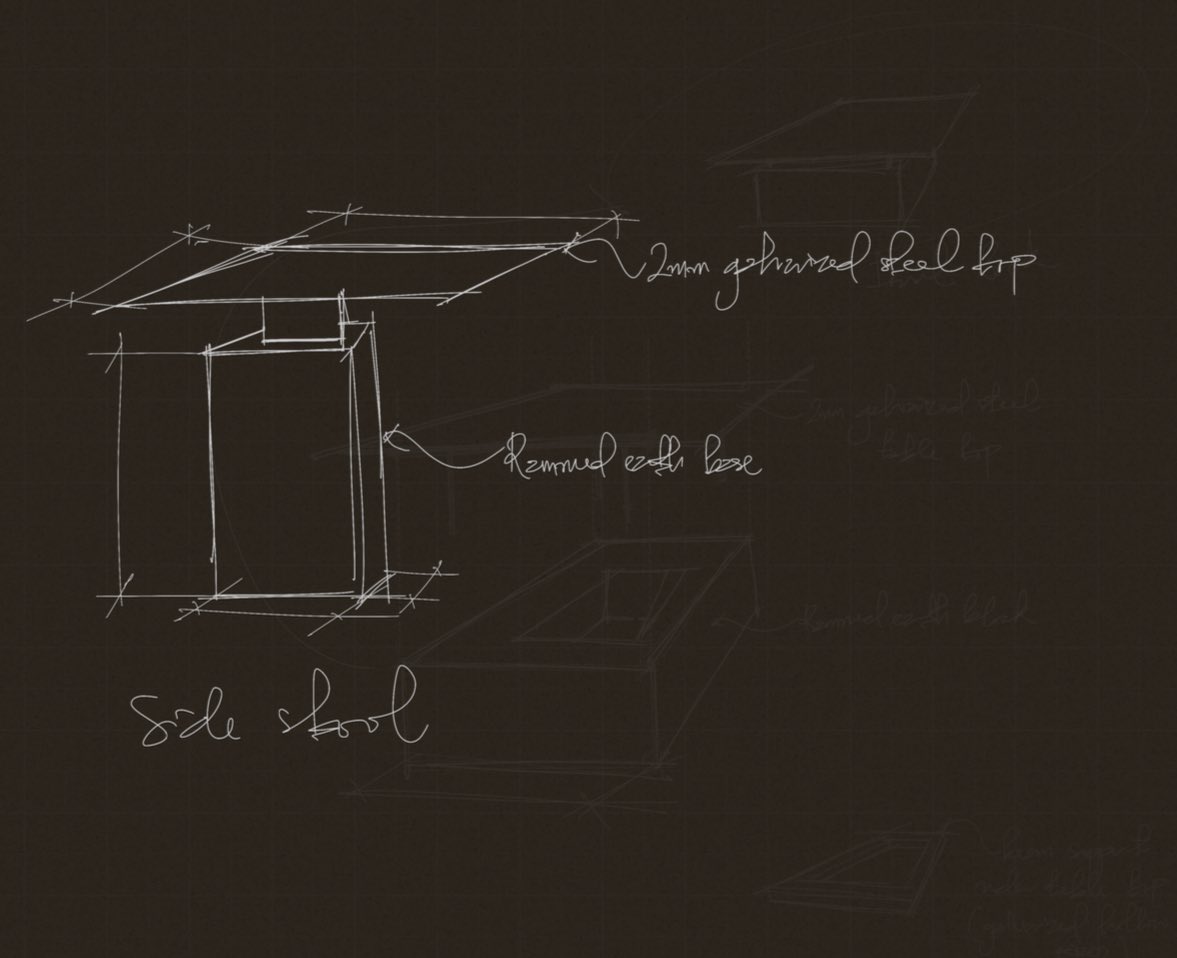 2mm galvanized steel top
2mm galvanized steel
table top
Rammed earth base
Rammed earth block
Side stool